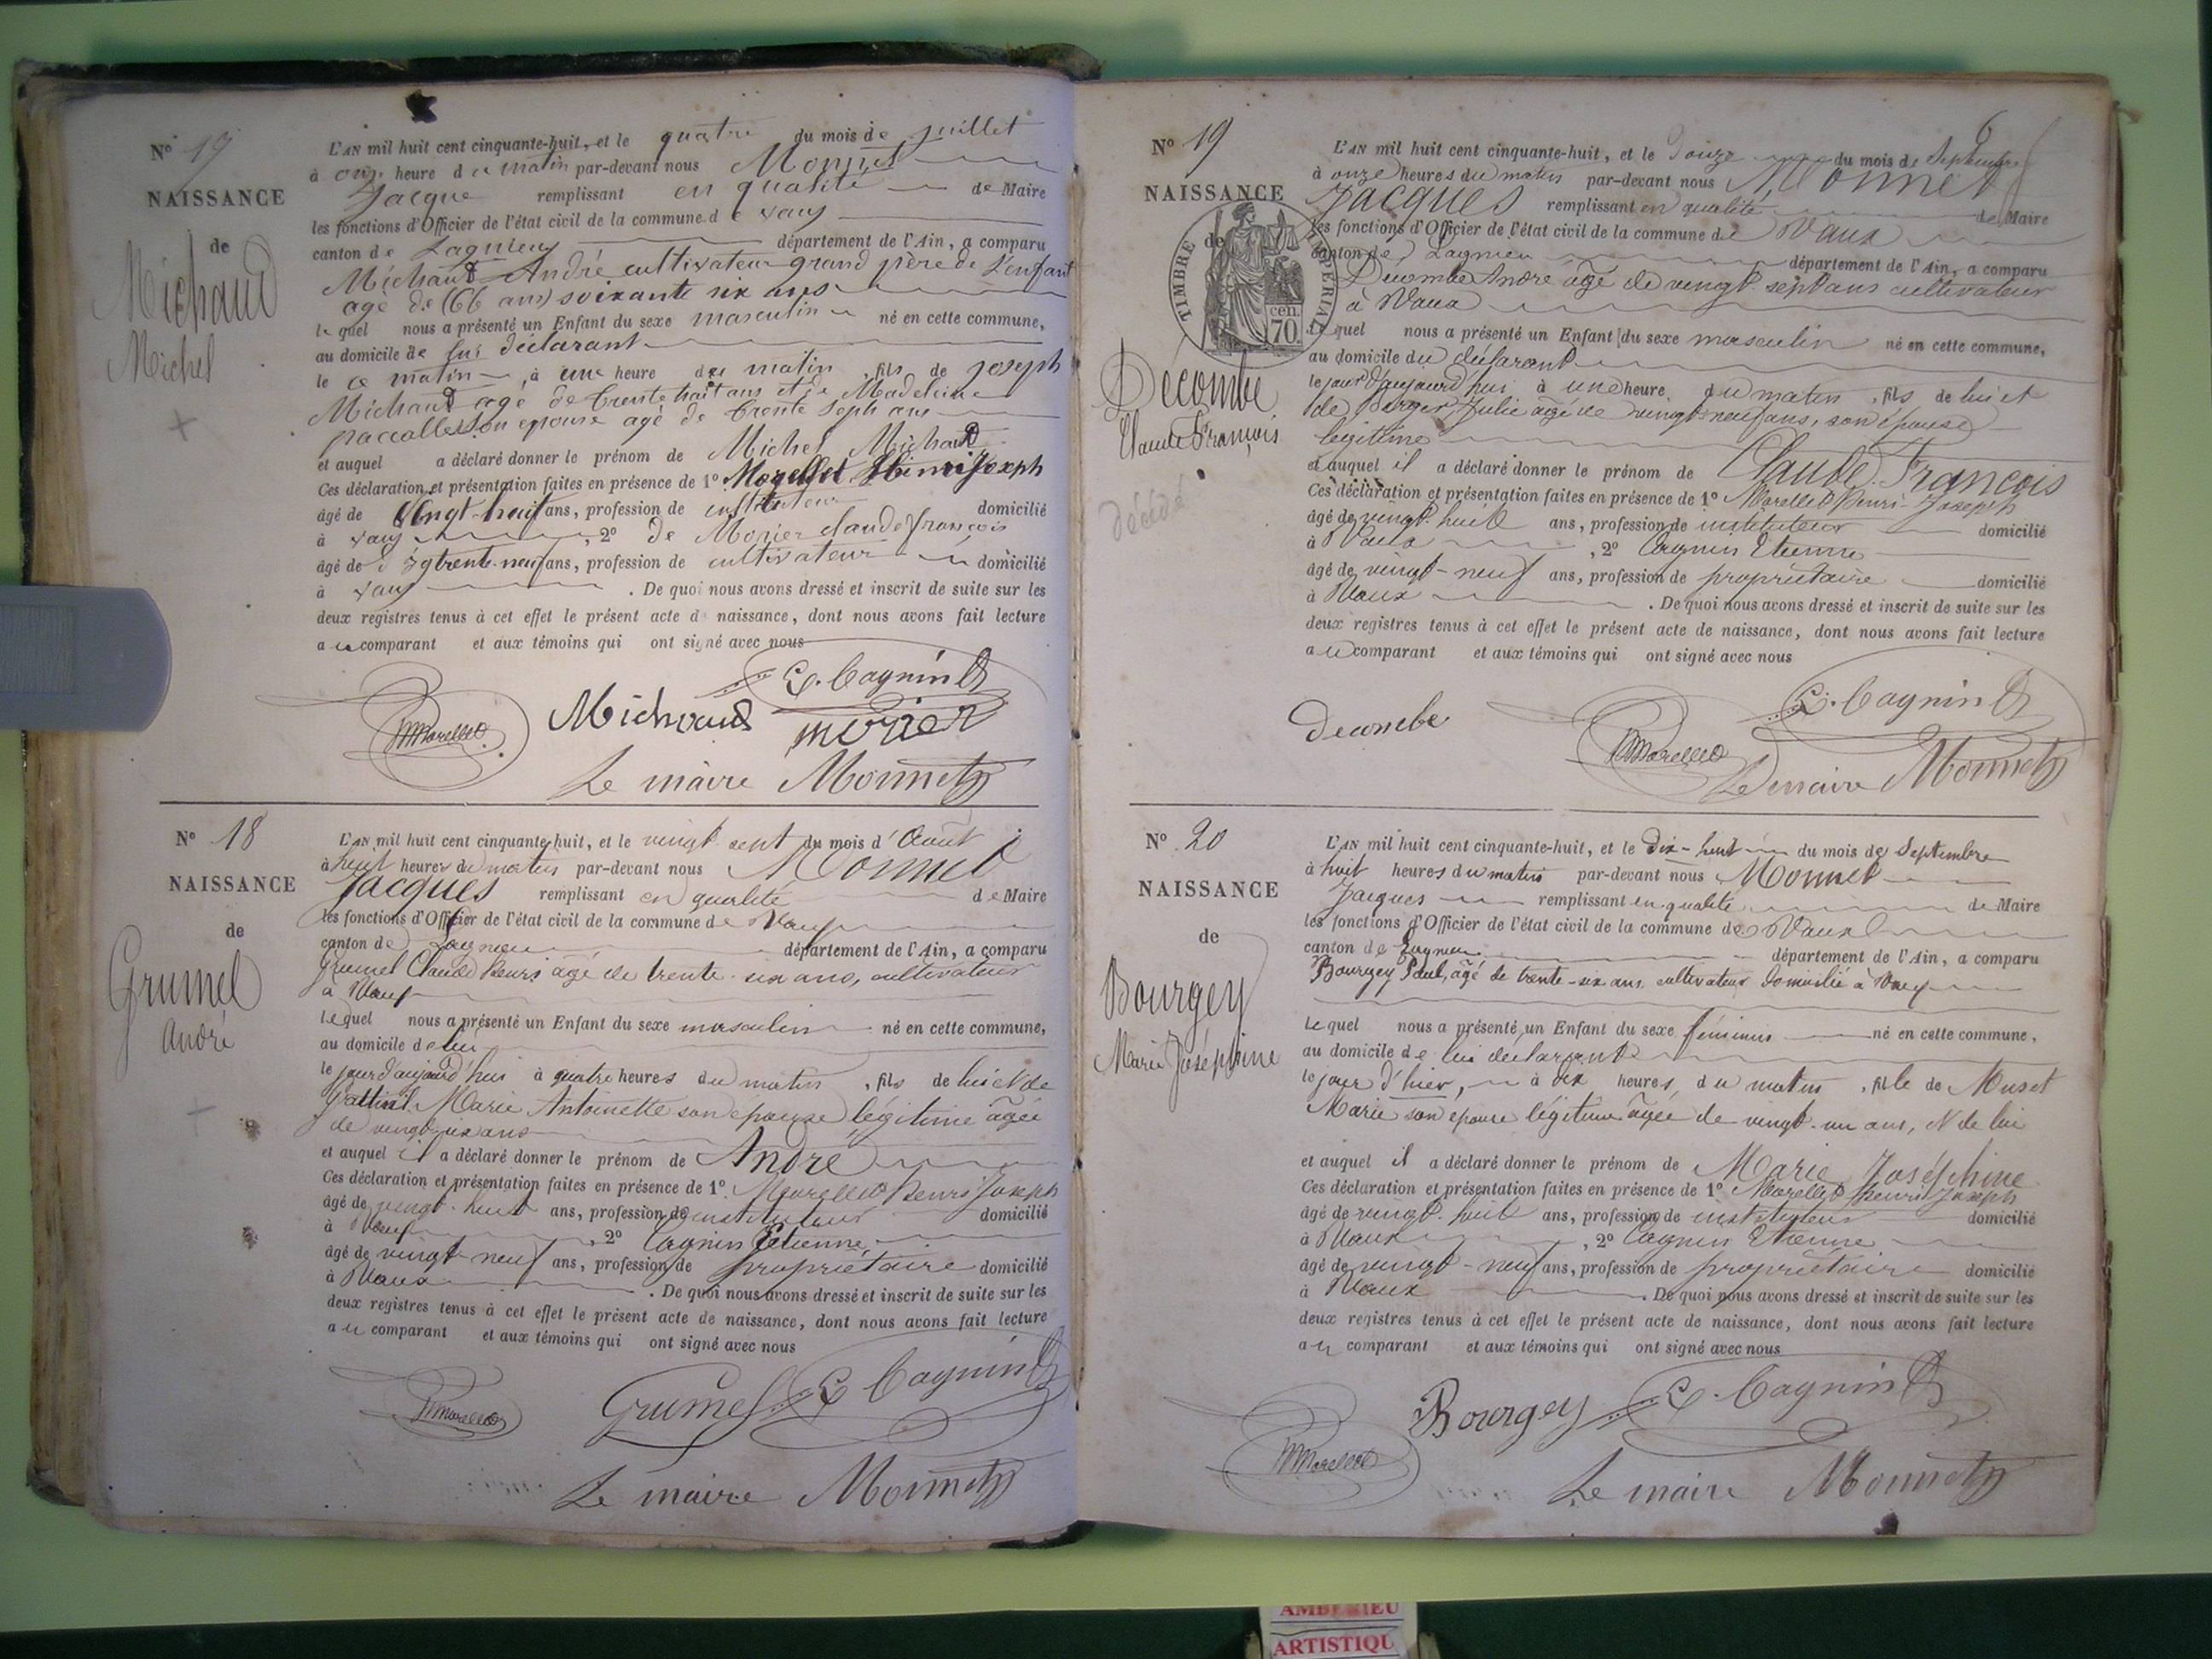 N° 17
NAISSANCE
de
Michaud
Michel
L'AN mil huit cent cinquante-huit, et le quatre du mois de juillet
à onze heure du matin par-devant nous Monnet
Jacque remplissant en qualité de Maire
les fonctions d'Officier de l'état civil de la commune de vaux
canton de Lagnieu département de l'Ain, a comparu
Michaud André cultivateur grand père de l'enfant
agé de (66 ans) soixante six ans
lequel nous a présenté un Enfant du sexe masculin né en cette commune,
au domicile de lui déclarant
le ce matin, à une heure du matin, fils de joseph
Michaud agé de trente huit ans et de Madeleine
paccallet son epouse agé de trente sept ans
et auquel a déclaré donner le prénom de Michel Michaud
Ces déclaration et présentation faites en présence de 1° Morellet Henri Joseph
âgé de vingt-huit ans, profession de instituteur domicilié
à vaux, 2° de Monier claude françois
âgé de 39 trente-neuf ans, profession de cultivateur domicilié
à vaux. De quoi nous avons dressé et inscrit de suite sur les
deux registres tenus à cet effet le présent acte de naissance, dont nous avons fait lecture
au comparant et aux témoins qui ont signé avec nous
E. Cagnin
HMorellet Michaud morier
Le maire Monnet
N° 18
NAISSANCE
de
Grumel
André
L'AN mil huit cent cinquante-huit, et le vingt sept du mois d'Août
à huit heures du matin par-devant nous Monnet
Jacques remplissant en qualité de Maire
les fonctions d'Officier de l'état civil de la commune de Vaux
canton de Lagnieu département de l'Ain, a comparu
Grumel Claude Henri âgé de trente-six ans, cultivateur
à Vaux
lequel nous a présenté un Enfant du sexe masculin né en cette commune,
au domicile de lui
le jour d'aujourd'hui à quatre heures du matin, fils de lui et de
Marie Antoinette son épouse légitime âgée
de vingt-six ans
et auquel il a déclaré donner le prénom de André
Ces déclaration et présentation faites en présence de 1° Morellet Henri Joseph
âgé de vingt-huit ans, profession de instituteur domicilié
à Vaux, 2° Cagnin Etienne
âgé de vingt-neuf ans, profession de propriétaire domicilié
à Vaux. De quoi nous avons dressé et inscrit de suite sur les
deux registres tenus à cet effet le présent acte de naissance, dont nous avons fait lecture
au comparant et aux témoins qui ont signé avec nous
HMorellet Grumel E. Cagnin
Le maire Monnet
6
N° 19
NAISSANCE
de
TIMBRE IMPERIAL
cen. 70.
Décombe
Claude François
décédé
L'AN mil huit cent cinquante-huit, et le Douze du mois de Septembre
à onze heures du matin par-devant nous Monnet
Jacques remplissant en qualité de Maire
les fonctions d'Officier de l'état civil de la commune de Vaux
canton de Lagnieu département de l'Ain, a comparu
Decombe Andre âgé de vingt sept ans cultivateur
à Vaux
lequel nous a présenté un Enfant du sexe masculin né en cette commune,
au domicile du déclarant
le jour d'aujourd'hui à une heure du matin, fils de lui et
de Berger Julie âgée de vingt-neuf ans, son épouse
légitime
et auquel il a déclaré donner le prénom de Claude François
Ces déclaration et présentation faites en présence de 1° Morellet Henri-Joseph
âgé de vingt-huit ans, profession de instituteur domicilié
à Vaux, 2° Cagnin Etienne
âgé de vingt-neuf ans, profession de propriétaire domicilié
à Vaux. De quoi nous avons dressé et inscrit de suite sur les
deux registres tenus à cet effet le présent acte de naissance, dont nous avons fait lecture
au comparant et aux témoins qui ont signé avec nous
Decombe E. Cagnin
HMorellet Le maire Monnet
N° 20
NAISSANCE
de
Bourgey
Marie Joséphine
L'AN mil huit cent cinquante-huit, et le dix-huit du mois de Septembre
à huit heures du matin par-devant nous Monnet
Jacques remplissant en qualité de Maire
les fonctions d'Officier de l'état civil de la commune de Vaux
canton de Lagnieu département de l'Ain, a comparu
Bourgey Paul, âgé de trente-six ans cultivateur domicilié à Vaux
lequel nous a présenté un Enfant du sexe féminin né en cette commune,
au domicile de lui déclarant
le jour d'hier, à dix heures du matin, fille de Muset
Marie son épouse légitime âgée de vingt-un ans, et de lui
et auquel il a déclaré donner le prénom de Marie Joséphine
Ces déclaration et présentation faites en présence de 1° Morellet henri Joseph
âgé de vingt-huit ans, profession de instituteur domicilié
à Vaux, 2° Cagnin Etienne
âgé de vingt-neuf ans, profession de propriétaire domicilié
à Vaux. De quoi nous avons dressé et inscrit de suite sur les
deux registres tenus à cet effet le présent acte de naissance, dont nous avons fait lecture
au comparant et aux témoins qui ont signé avec nous
Bourgey E. Cagnin
HMorellet
Le maire Monnet
AMBERIEU
ARTISTIQU